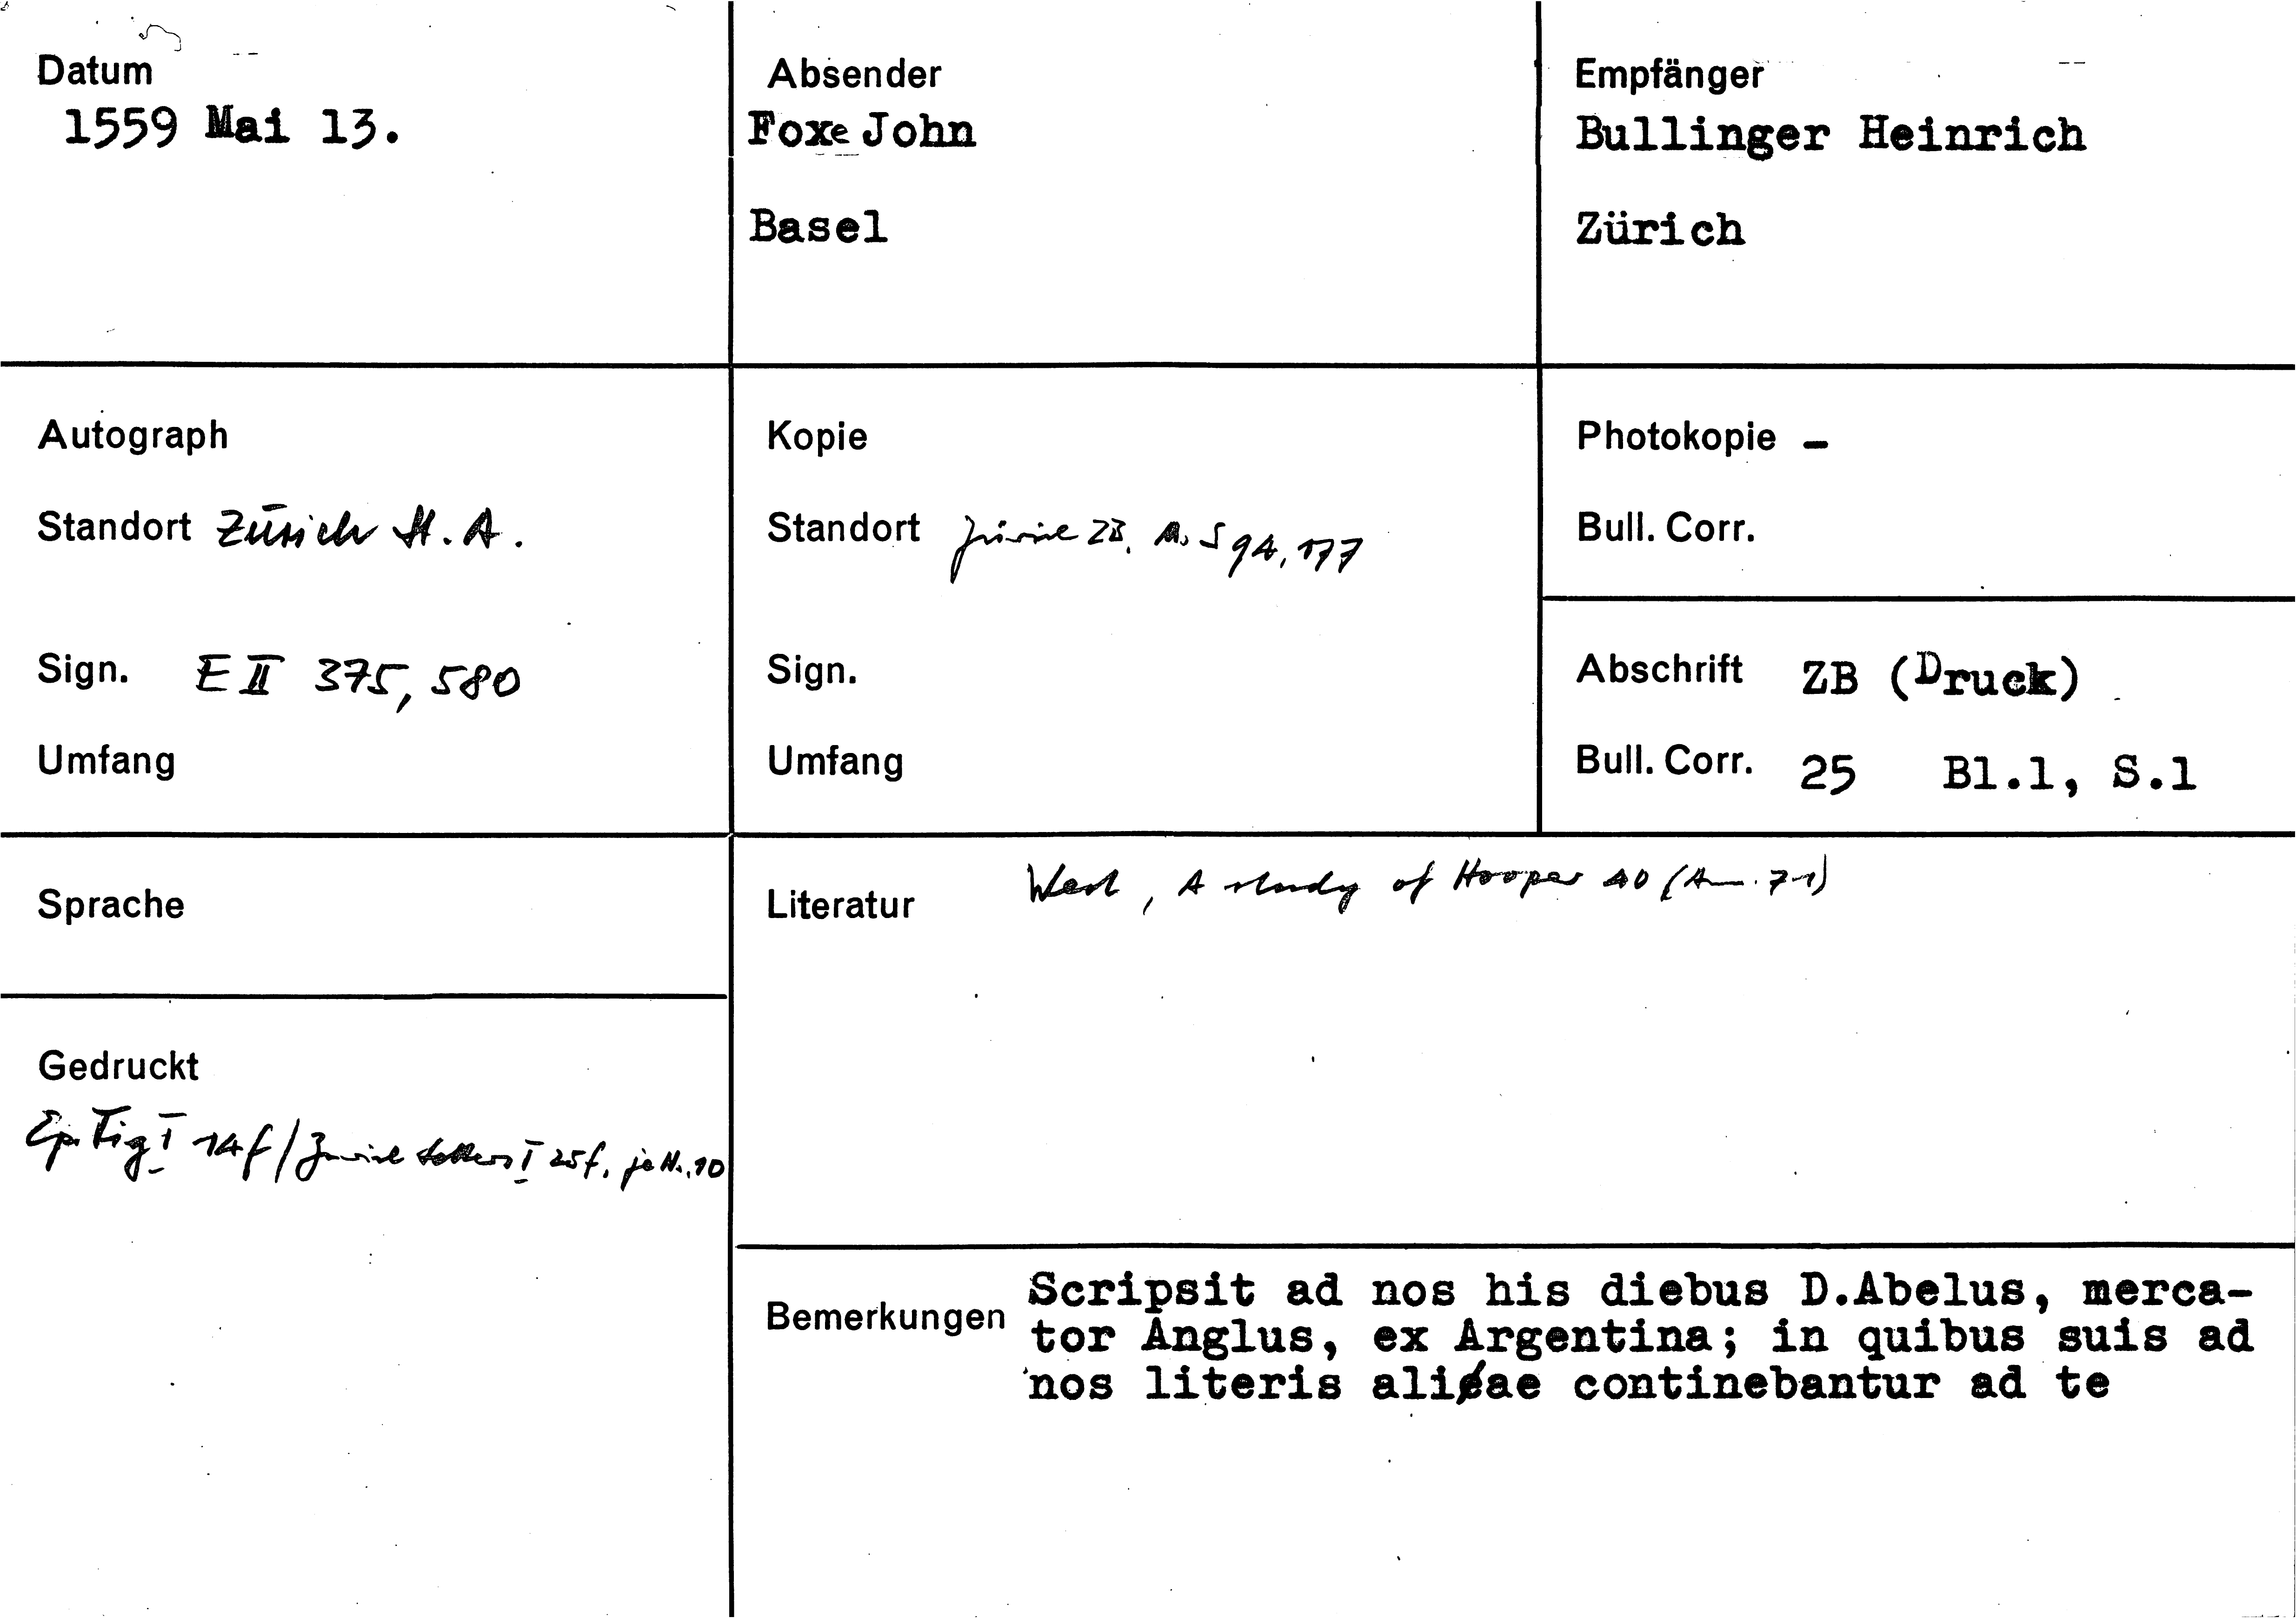 Datum
1559 Mai 13.
Absender
Foxe John
Basel
Empfänger
Bullinger Heinrich
Zürich
Autograph
Standort Zürich St. A.
Sign. E II 375, 580
Umfang
Kopie
Standort Zürich ZB, Ms S 94, 177
Sign.
Umfang
Photokopie -
Bull. Corr.
Abschrift ZB (Druck)
Bull. Corr. 25 Bl.1, S.1
Sprache
Literatur West, A study of Hooper 40 (Anm. 71)
Gedruckt
Ep. Tig I 14f / Zurich Letters I 25f, je Nr. 10
Bemerkungen Scripsit ad nos his diebus D.Abelus, merca-
tor Anglus, ex Argentina; in quibus suis ad
nos literis aliae continebantur ad te